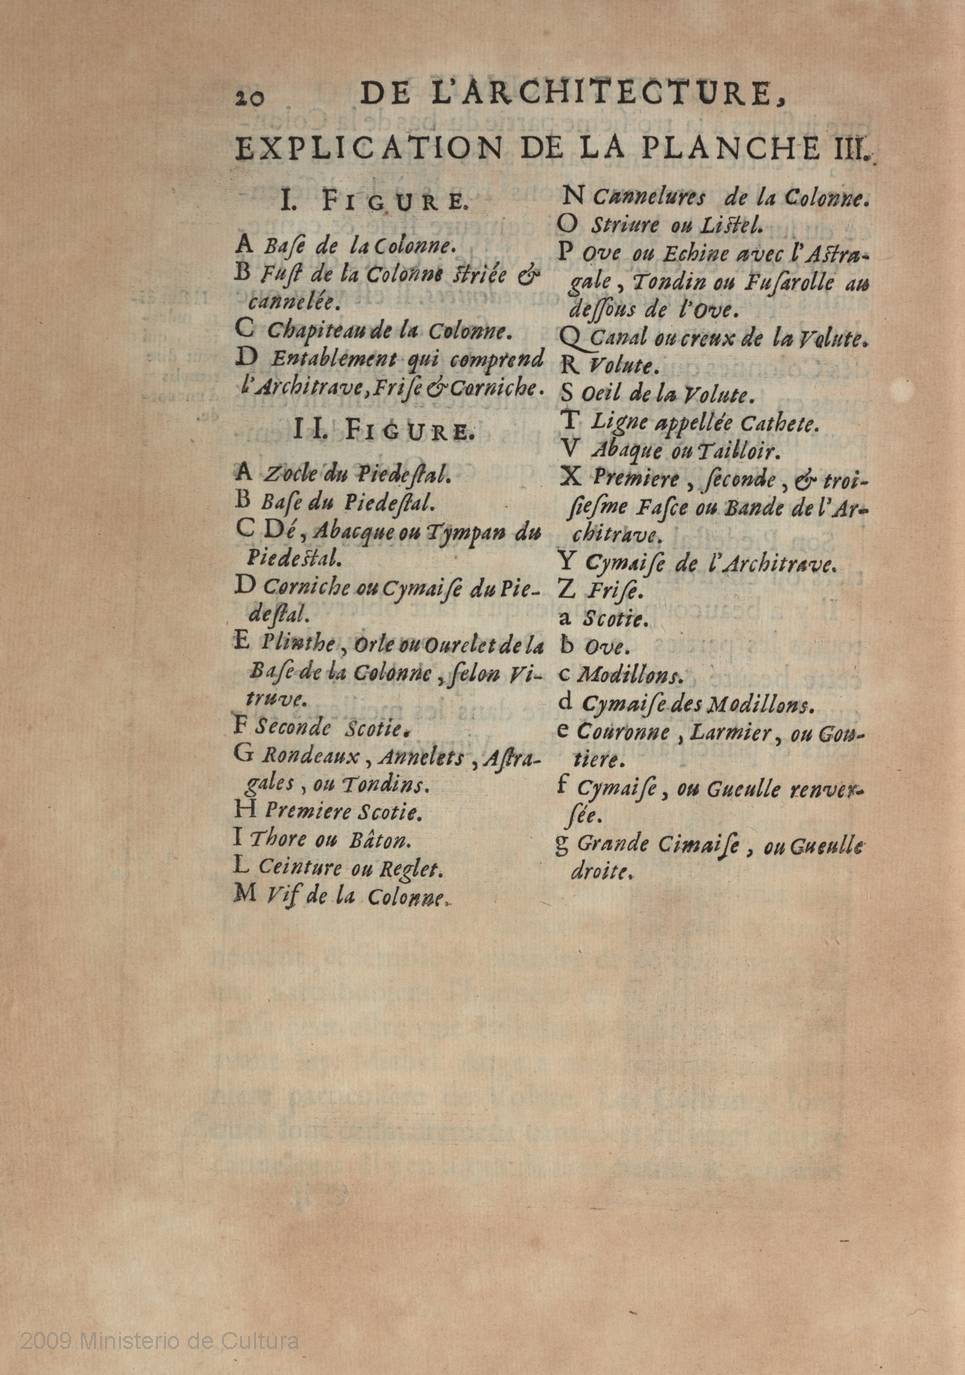 20 DE L'ARCHITECTURE,
EXPLICATION DE LA PLANCHE III.
I. FIGURE.
A Baſe de la Colonne.
B Fuſt de la Colonne ſtriée &
cannelée.
C Chapiteau de la Colonne.
D Entablement qui comprend
l'Architrave, Friſe & Corniche.
II. FIGURE.
A Zocle du Piedeſtal.
B Baſe du Piedeſtal.
C Dé, Abacque ou Tympan du
Piedeſtal.
D Corniche ou Cymaiſe du Pie-
deſtal.
E Plinthe, Orle ou Ourelet de la
Baſe de la Colonne, ſelon Vi-
truve.
F Seconde Scotie.
G Rondeaux, Annelets, Aſtra-
gales, ou Tondins.
H Premiere Scotie.
I Thore ou Bâton.
L Ceinture ou Reglet.
M Vif de la Colonne.
N Cannelures de la Colonne.
O Striure ou Liſtel.
P Ove ou Echine avec l'Aſtra-
gale, Tondin ou Fuſarolle au
deſſous de l'Ove.
Q Canal ou creux de la Volute.
R Volute.
S Oeil de la Volute.
T Ligne appellée Cathete.
V Abaque ou Tailloir.
X Premiere, ſeconde, & troi-
ſieſme Faſce ou Bande de l'Ar-
chitrave.
Y Cymaiſe de l'Architrave.
Z Friſe.
a Scotie.
b Ove.
c Modillons.
d Cymaiſe des Modillons.
e Couronne, Larmier, ou Gou-
tiere.
f Cymaiſe, ou Gueulle renver-
ſée.
g Grande Cimaiſe, ou Gueulle
droite.
2009 Ministerio de Cultura